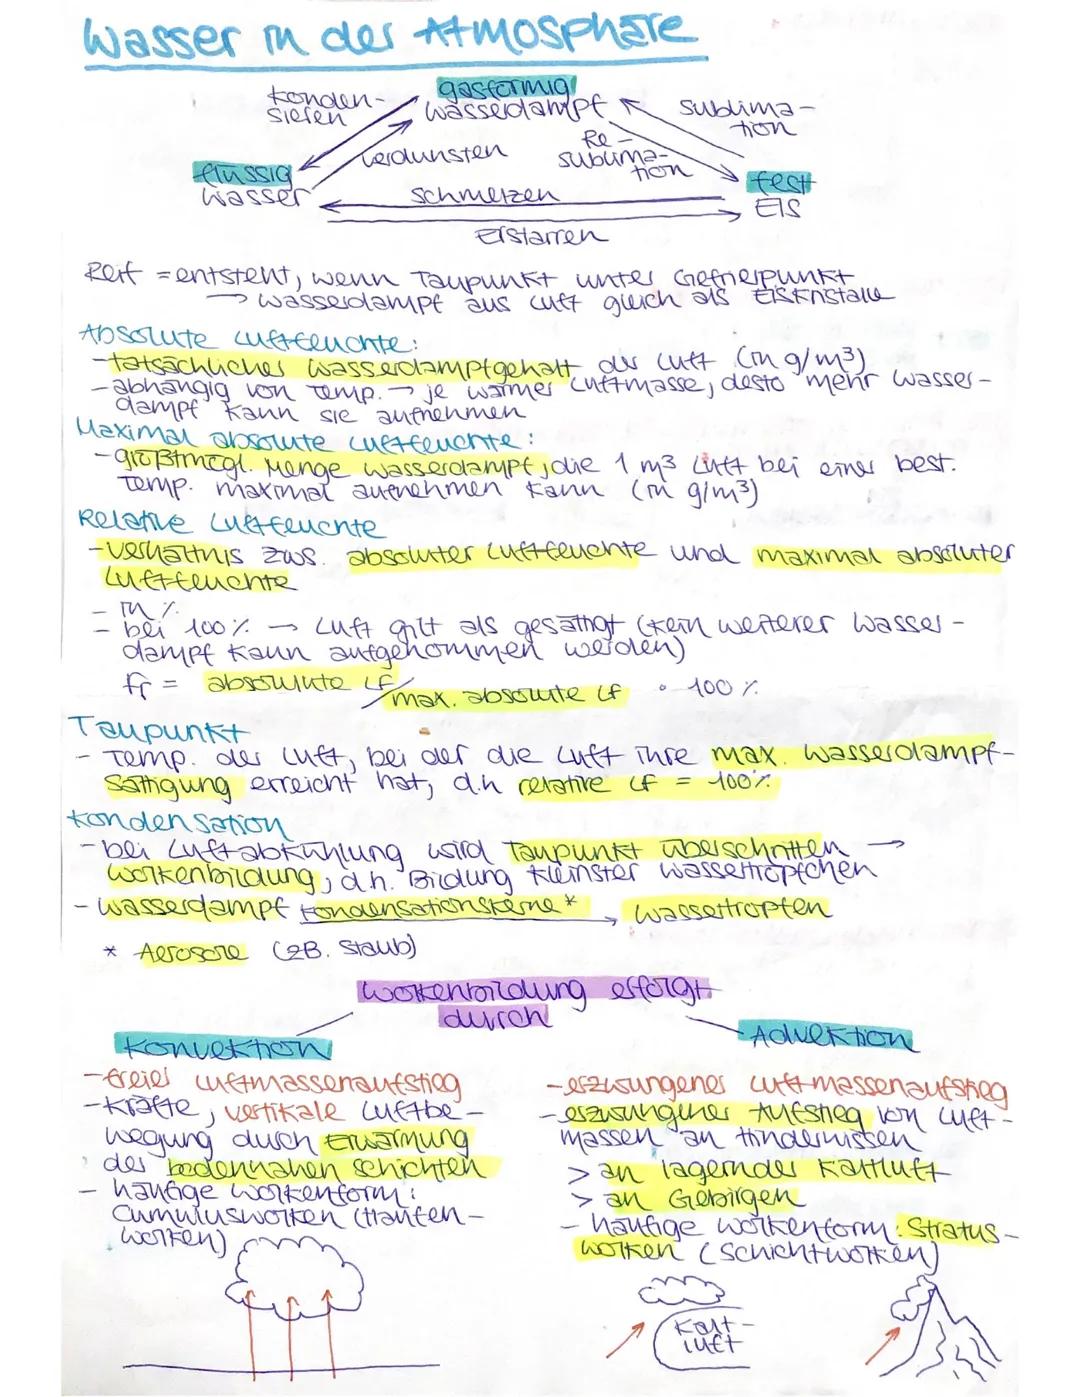 Wasser in der Atmosphäre
gasförmig
Wasserdampf
konden-
sieren
sublima-
tion
verdunsten
Re-
sublima-
tion
flüssig
Wasser
fest
EIS
schmelzen
Erstarren
Reif = entsteht, wenn Taupunkt unter Gefrierpunkt
→ Wasserdampf aus Luft gleich als Eiskristalle
Absolute Luftfeuchte:
- tatsächlicher Wasserdampfgehalt der Luft (in g/m³)
- abhängig von Temp. → je wärmer Luftmasse, desto mehr Wasser-
dampf kann sie aufnehmen
Maximal absolute Luftfeuchte:
- größtmögl. Menge Wasserdampf, die 1 m³ Luft bei einer best.
Temp. maximal aufnehmen kann (in g/m³)
Relative Luftfeuchte
- Verhältnis zws. absoluter Luftfeuchte und maximal absoluter
Luftfeuchte
- in %
- bei 100% → Luft gilt als gesättigt (kein weiterer Wasser-
dampf kann aufgenommen werden)
fr = absolute LF / max. absolute LF • 100 %
Taupunkt
- Temp. der Luft, bei der die Luft ihre max. Wasserdampf-
sättigung erreicht hat, d.h relative LF = 100%
Kondensation
- bei Luftabkühlung wird Taupunkt überschritten →
Wolkenbildung, d.h. Bildung kleinster Wassertröpfchen
- Wasserdampf Kondensationskerne* → Wassertropfen
* Aerosole (zB. Staub)
Wolkenbildung erfolgt
durch
Konvektion
- freier Luftmassenaufstieg
- Kräfte, vertikale Luftbe-
wegung durch Erwärmung
der bodennahen Schichten
- häufige Wolkenform:
Cumuluswolken (Haufen-
wolken)
Advektion
- erzwungener Luftmassenaufstieg
- erzwungener Aufstieg von Luft-
massen an Hindernissen
> an lagernder Kaltluft
> an Gebirgen
- häufige Wolkenform: Stratus-
wolken (Schichtwolken)
Kalt-
luft